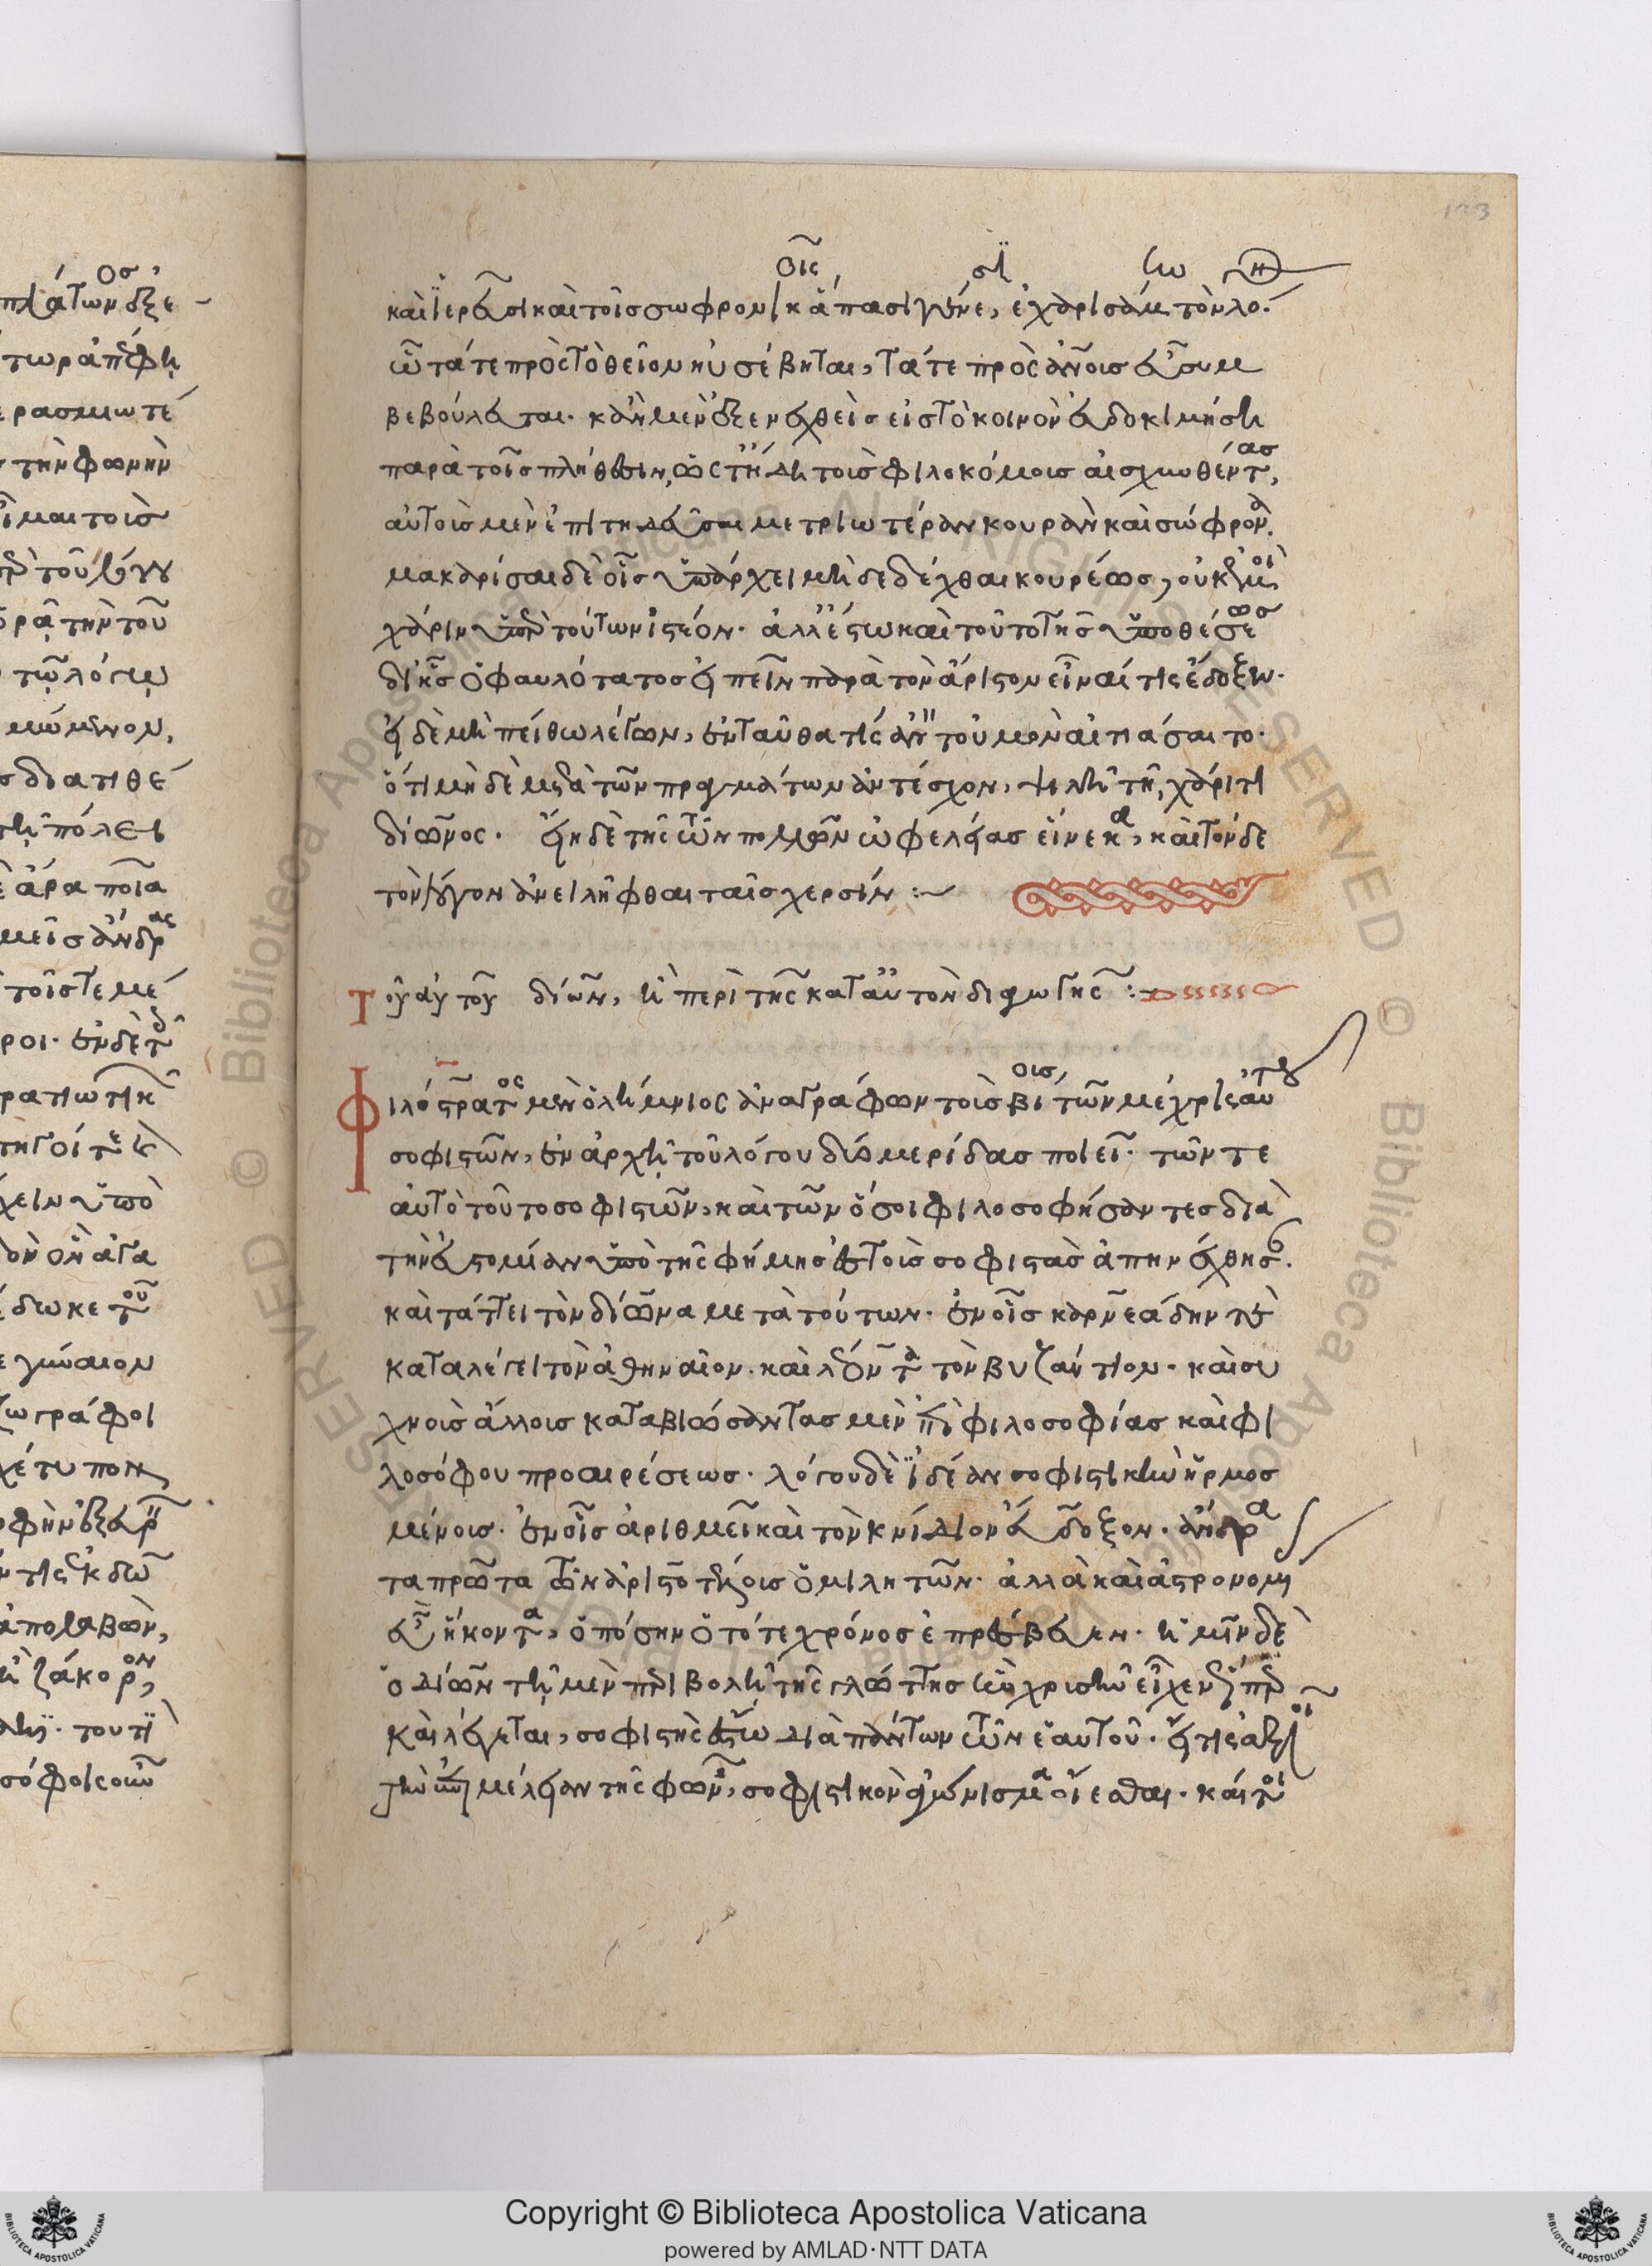 καὶ ἱερεῦσι καὶ τοῖς σωφρονικοῖς ἅπασι γέγονε, ἐχαρισάμην τὸν λό.
ὦ τά τε πρὸς τὸ θεῖον ηὐσέβηται, τά τε πρὸς ἀνοις εὖ συμ
βεβούλευται. κἂν μὲν ἐξενεχθεὶς εἰς τὸ κοινὸν εὐδοκιμήσῃ
παρὰ τοῖς πλήθεσιν, ὥστ' ἤδη τοῖς φιλοκόμοις αἰσχυνθέντας,
αὐτοῖς μὲν ἐπιτηδεῦσαι μετριωτέραν κουρὰν καὶ σώφρονα.
μακαρίσαι δὲ οἷς ὑπάρχει μὴ δεδέχθαι κουρέως, οὐκ ἐμοὶ
χάριν ὑπὲρ τούτων ἰστέον. ἀλλ' ἔστω καὶ τοῦτο τῆς ὑποθέσεως
δι' ἧς ὁ φαυλότατος εἰπεῖν παρὰ τὸν ἄριστον εἶναί τις ἔδοξεν.
εἰ δὲ μὴ πείθω λέγων, ἐνταῦθα τίς ἂν τοὐμὸν αἰτιάσαιτο.
ὅτι μηδὲ μετὰ τῶν πραγμάτων ἀντέσχον, ψιλῇ τῇ χάριτι
δίωνος. εἴη δὲ τῆς τῶν πολλῶν ὠφελείας εἵνεκα, καὶ τόνδε
τὸν λόγον ἀνειλῆφθαι ταῖς χερσίν :~
Τοῦ αὐτοῦ δίων, ἢ περὶ τῆς κατ' αὐτὸν διαγωγῆς :
Φιλόστρατος μὲν ὁ λήμνιος ἀναγράφων τοῖς βίοις, τῶν μέχρις αὐτοῦ
σοφιστῶν, ἐν ἀρχῇ τοῦ λόγου δύο μερίδας ποιεῖ. τῶν τε
αὐτὸ τοῦτο σοφιστῶν, καὶ τῶν ὅσοι φιλοσοφήσαντες διὰ
τὴν εὐστομίαν ὑπὸ τῆς φήμης εἰς τοὺς σοφιστὰς ἀπηνέχθησαν.
καὶ τάττει τὸν δίωνα μετὰ τούτων. ἐν οἷς καρνεάδην τὲ
καταλέγει τὸν ἀθηναῖον. καὶ λέοντα τὸν βυζάντιον. καὶ συ
χνοὺς ἄλλους καταβιώσαντας μὲν ἐπὶ φιλοσοφίας καὶ φι
λοσόφου προαιρέσεως. λόγου δὲ ἰδέαν σοφιστικὴν ἡρμοσ
μένους. ἐν οἷς ἀριθμεῖ καὶ τὸν κνίδιον εὔδοξον. ἄνδρα
τα πρῶτα τῶν ἀριστοτέλους ὁμιλητῶν. ἀλλὰ καὶ ἀστρονομί
ας εὖ ἥκοντα, ὁπόσην ὁ τότε χρόνος ἐπρέσβευεν. ἡμῖν δὲ
ὁ δίων τῇ μὲν περιβολῇ τῆς γλώττης ἣν χρυσῆν εἶχεν ὥσπερ
καὶ λέγεται, σοφιστὴς ἔστω διὰ πάντων τῶν ἑαυτοῦ. εἴ τις ἀξιοῖ
τὴν ἐπιμέλειαν τῆς φωνῆς, σοφιστικὸν ἀγώνισμα οἴεσθαι. καίτοι